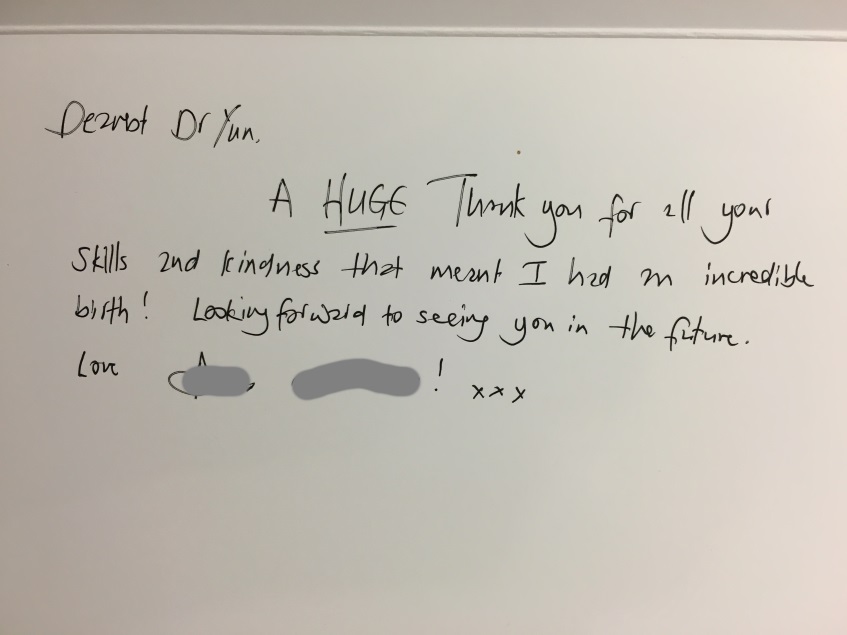 Dearest Dr Yun,
A HUGE Thank you for all your
skills and kindness that meant I had an incredible
birth! Looking forward to seeing you in the future.
Love ! xxx